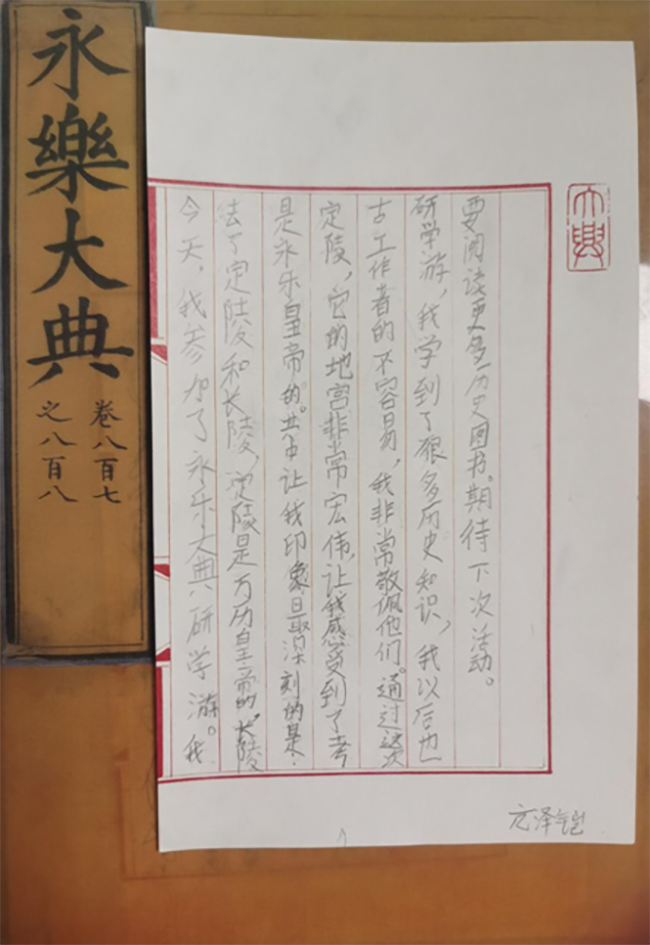 永樂大典
卷八百七
之八百八
今天，我参加了永乐大典研学游。我
去了定陵和长陵，定陵是万历皇帝的。长陵
是永乐皇帝的。其中让我印象最深刻的是
定陵，它的地宫非常宏伟，让我感受到了考
古工作者的不容易，我非常敬佩他们。通过这次
研学游，我学到了很多历史知识，我以后也
要阅读更多历史图书。期待下次活动。
大興